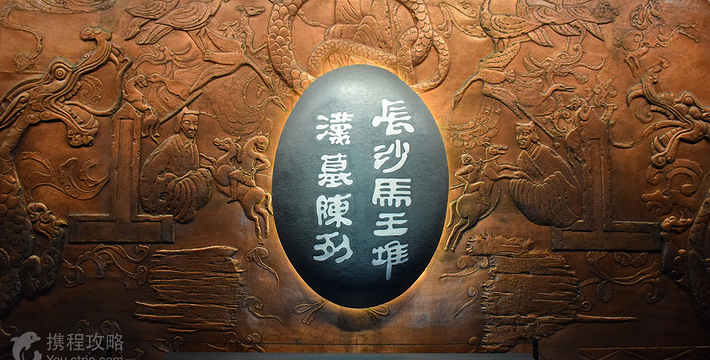 長沙馬王堆
漢墓陳列
携程攻略
You.ctrip.com